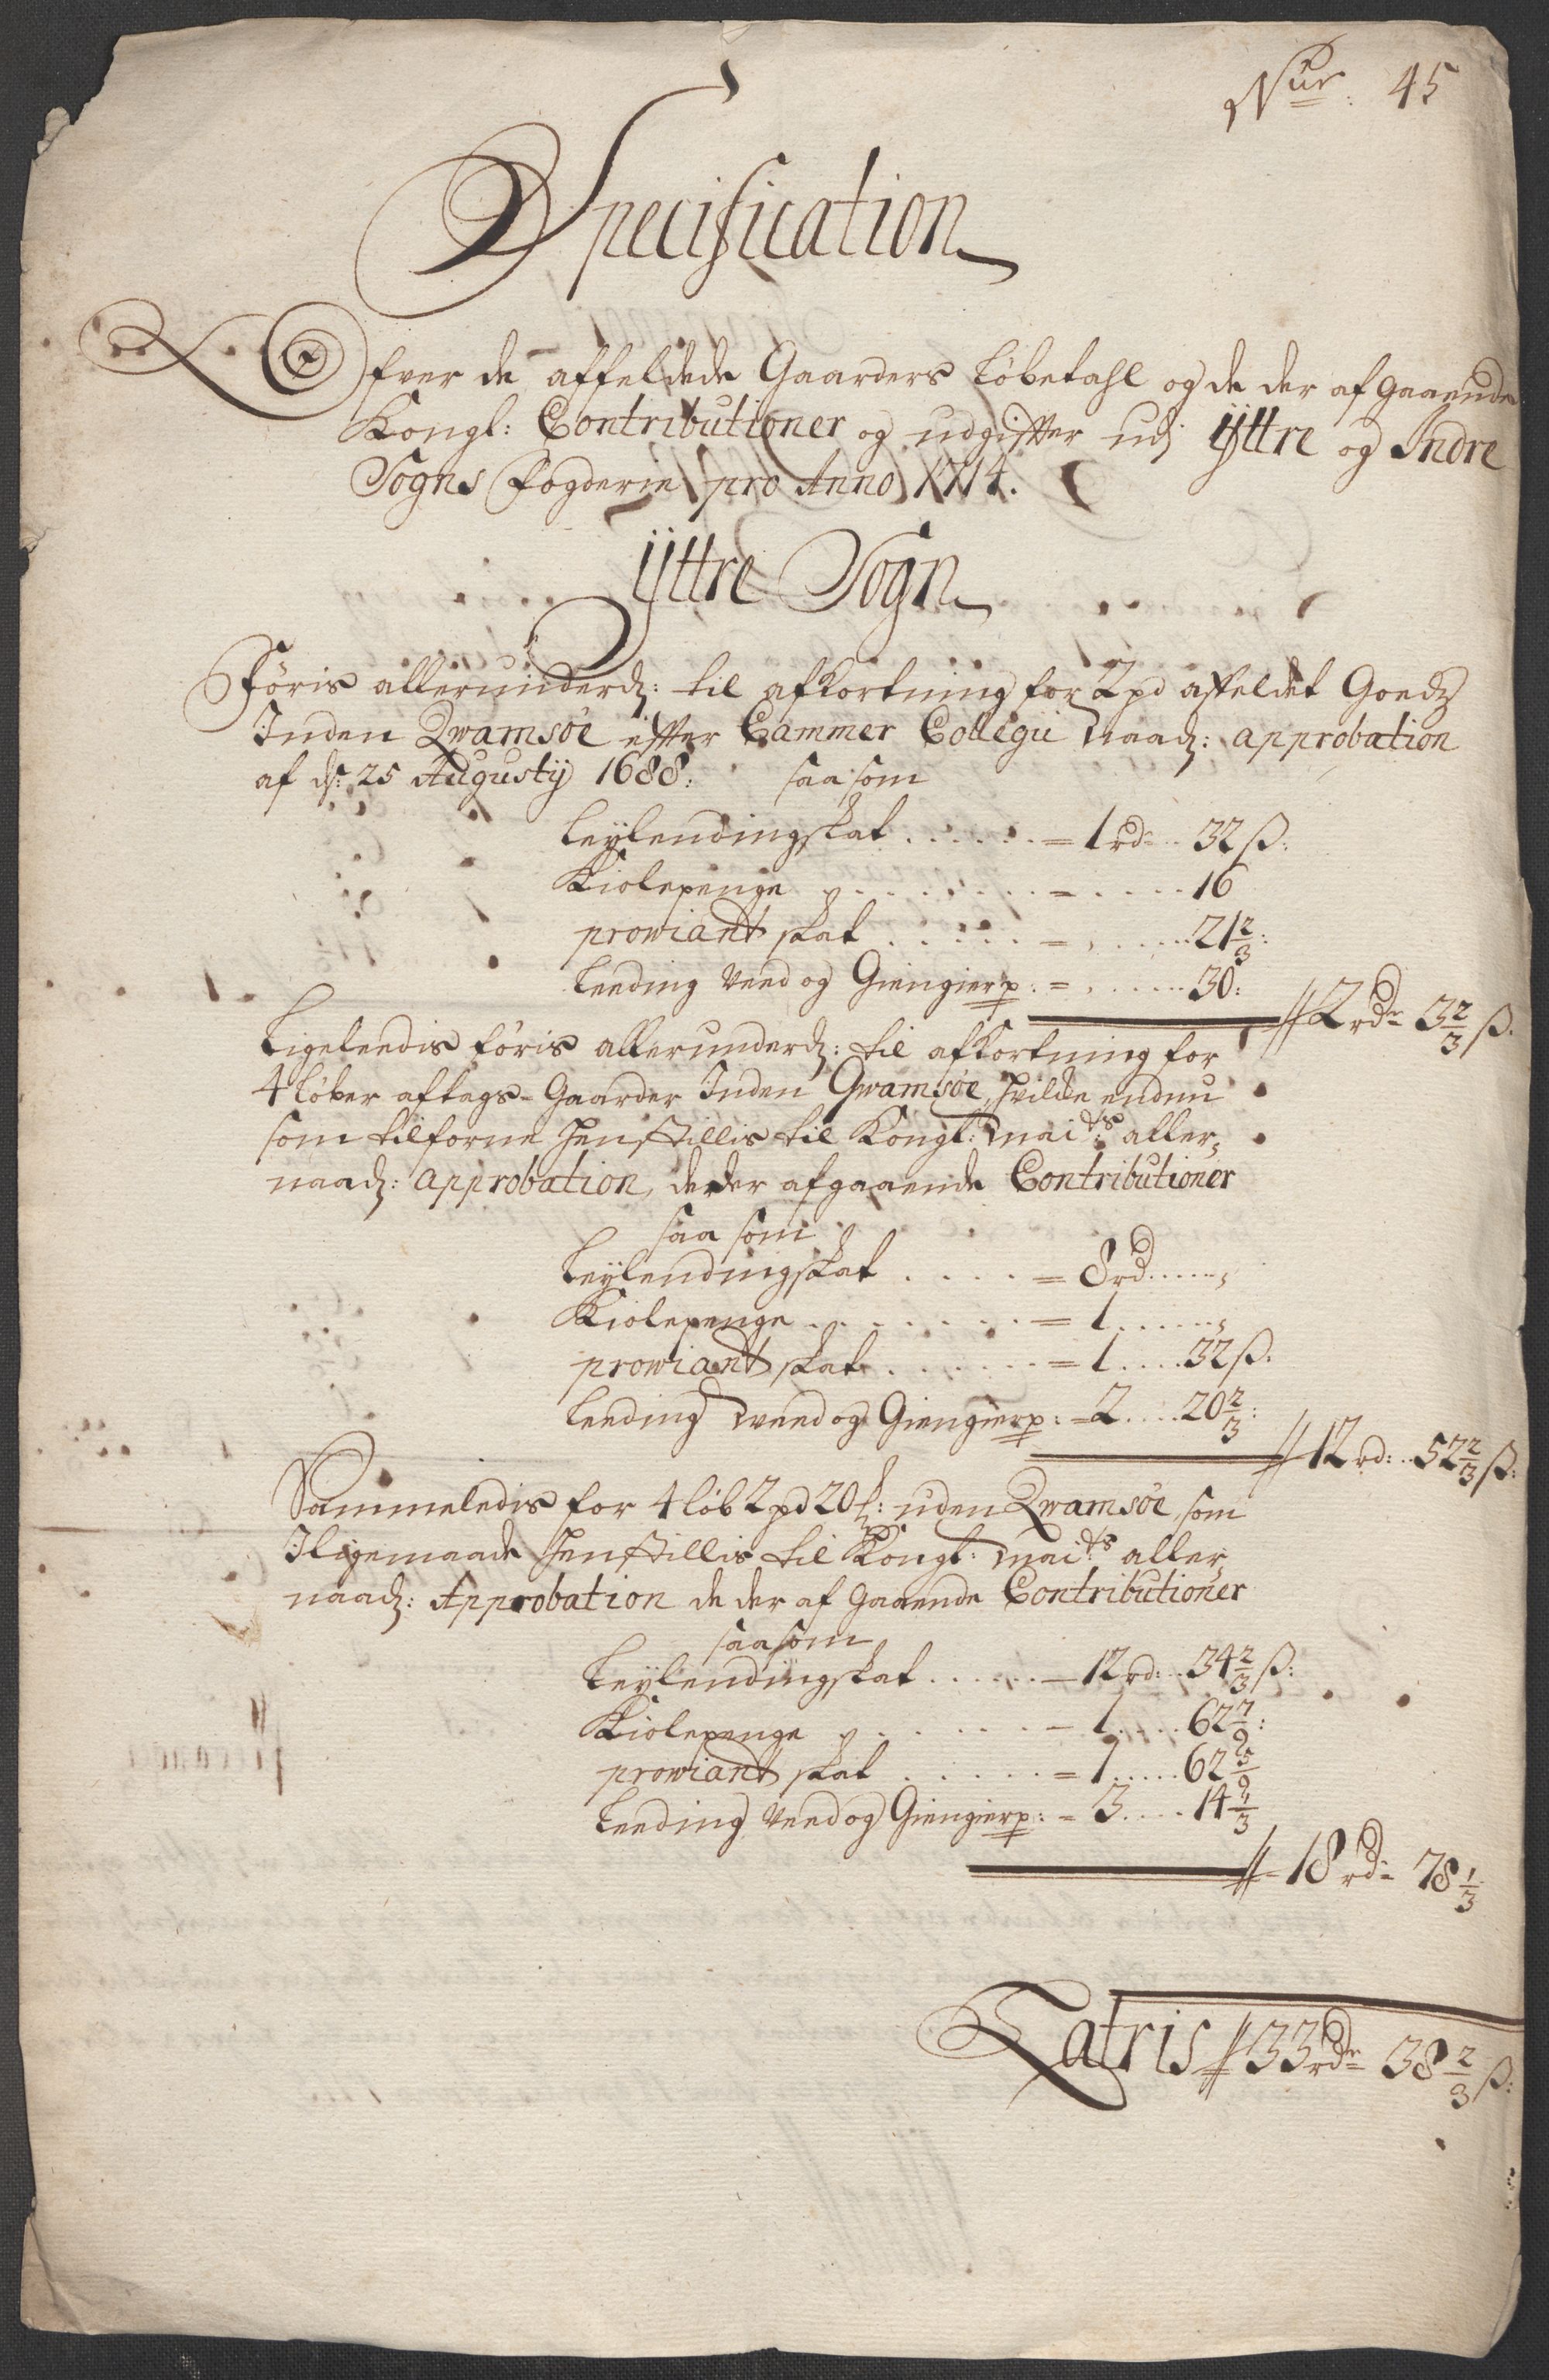 Nur: 45
Specification
Ofver de affeldede Gaarders løbetahl og de der afgaaende
Kongl: Contributioner og udgiffter udj Ÿttre og Indre
Sogns fogderie pro Anno 1714.
Ÿttre Sogn
Føris allerunderd: til afkortning for 2 pd affeldet Goedz
Inden Qwamsøe effter Cammer Collegii naad: approbation
af d: 25 Augustij 1688: saa som
leylendingskat . . . . . = 1 rd: 32 ß:
Kiolepenge . . . . . = . . . . 16
prowiant skat . . . . . = . . . . 21 2/3:
leeding Veed og Giengierp: = . . . . 30:
// 2 rdr 3 2/3 ß.
Ligeleedis føris allerunderd: til afkortning for
4 løber aftags-Gaarder Inden Qwamsøe, hvilke endnu
som tilforne henstillis til Kongl: Maits aller,
naad: approbation, de der afgaaende Contributioner
saa som
leylendingskat . . . . = 8 rd . . . . ,
Kiolepenge . . . . . . = 1 . . . . ,
prowiant skat . . . . . = 1 . . . . 32 ß.
leeding weed og Giengierp: = 2 . . . . 20 2/3:
// 12 rd: . . 52 2/3 ß:
Sammeledis for 4 løb 2 pd 20 : uden Qwamsøe, som
Iligemaade henstillis til Kongl: Maits aller,
naad: Approbation de der af Gaaende Contributioner
saa som
leylendingskat . . . . . = 12 rd: . . 34 2/3 ß:
Kiolepenge . . . . . = 1 . . . . 62 7/9:
prowiant skat . . . . . = 1 . . . . 62 5/9
leeding Veed og Giengierp: = 3 . . . . 14 1/3
// 18 rd: 78 1/3
Latris // 33 rdr 38 2/3 ß: